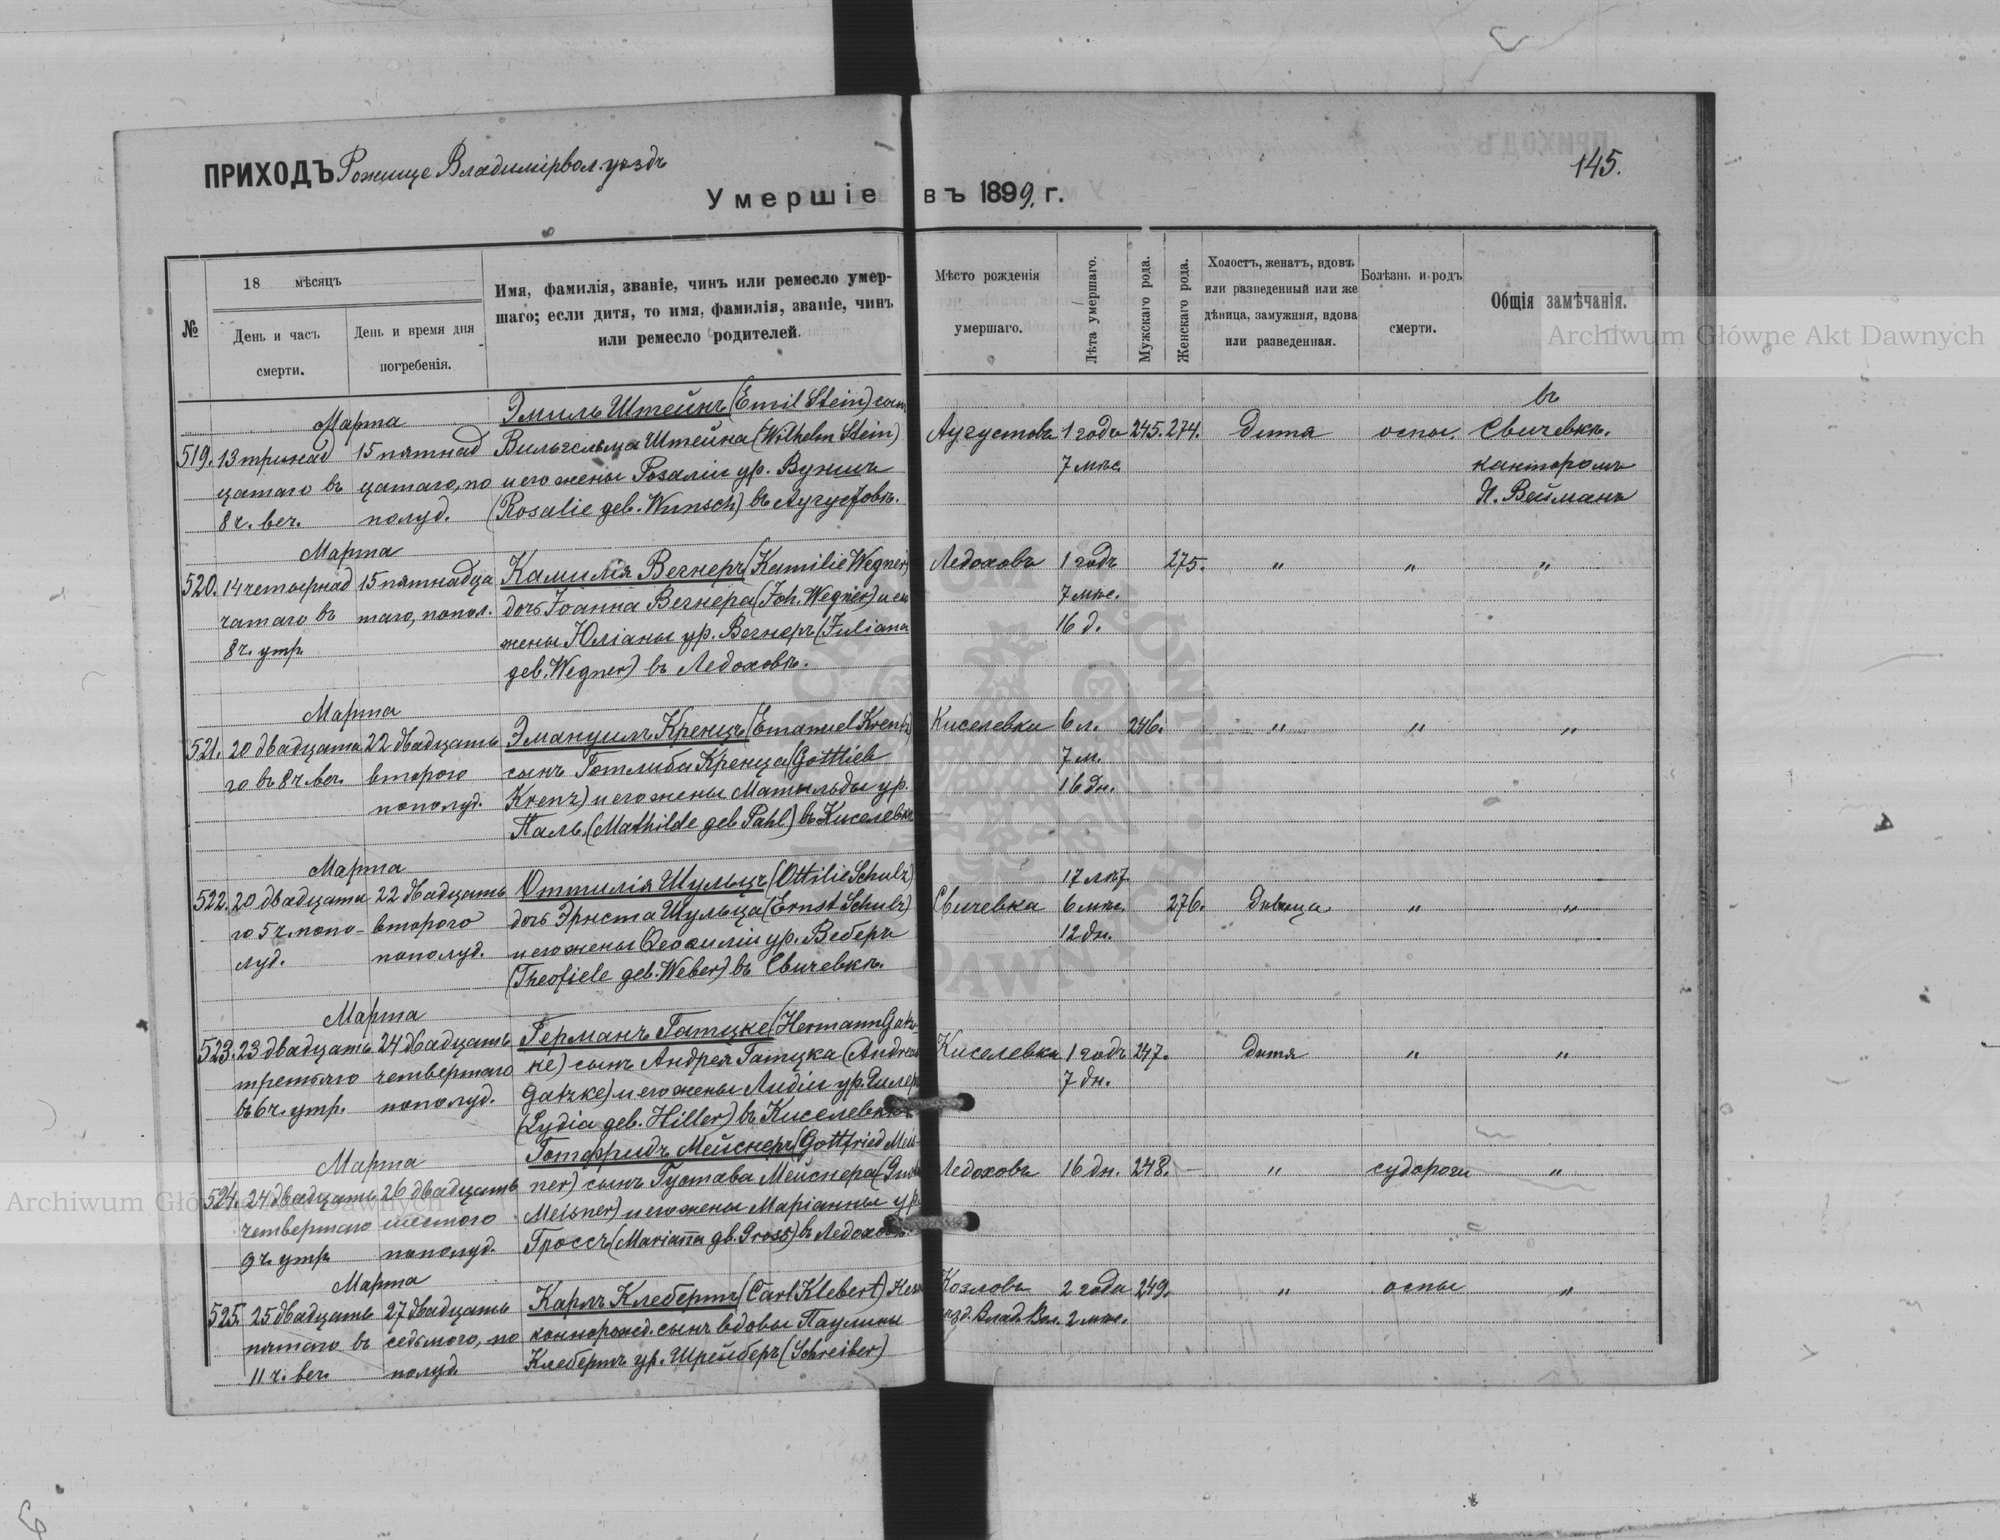 ПРИХОДЪ Рожище Владимірвол. уѣздъ
145.
Умершіе въ 1899. г.
№
18 мѣсяцъ
День и часъ смерти.
День и время дня погребенія.
Имя, фамилія, званіе, чинъ или ремесло умер-
шаго; если дитя, то имя, фамилія, званіе, чинъ
или ремесло родителей.
Мѣсто рожденія умершаго.
Лѣта умершаго.
Мужскаго рода.
Женскаго рода.
Холостъ, женатъ, вдовъ
или разведенный или же
дѣвица, замужняя, вдова
или разведенная.
Болѣзнь и родъ смерти.
Общія замѣчанія.
Archiwum Główne Akt Dawnych
Эмиль Штейнъ (Emil Stein) сынъ
въ
Марта
519. 13 тринад 15 пятнад Вильгельма Штейна (Wilhelm Stein) Аугустовъ 1 годъ 245. 274. Дитя оспы. Свичевкѣ.
цатаго въ цатаго, по и его жены Розаліи ур. Вуншъ 7 мѣс. канторомъ
8 ч. веч. полуд. (Rosalie geb. Wunsch) въ Аугустовѣ. Н. Вейманъ
Марта
520. 14 четырнад 15 пятнадца Камилія Вегнеръ (Kamilie Wegner) Ледоховъ 1 годъ 275. " " "
цатаго въ таго, попол. дочь Іоанна Вегнера (Joh. Wegner) и его 7 мѣс.
8 ч. утр. жены Юліаны ур. Вегнеръ (Juliana 16 д.
geb. Wegner) въ Ледоховѣ.
Марта
521. 20 двадцата 22 двадцать Эмануилъ Кренцъ (Emanuel Krentz) Киселевка 6 л. 246. " " "
го въ 8 ч. веч. второго сынъ Готлиба Кренца (Gottlieb 7 м.
пополуд. Krenz) и его жены Матильды ур. 16 дн.
Паль (Mathilde geb. Pahl) въ Киселевкѣ
Марта
Оттилія Шульцъ (Ottilie Schulz) 17 лѣт
522. 20 двадцата 22 двадцать дочь Эрнста Шульца (Ernst Schulz) Свичевка 6 мѣс. 276. Дѣвица " "
го 5 ч. попо- второго и его жены Ѳеофиліи ур. Веберъ 12 дн.
луд. пополуд. (Theofiele geb. Weber) въ Свичевкѣ.
Марта
Германъ Гатцке (Hermann Gatz-
523. 23 двадцать 24 двадцать ke) сынъ Андрея Гатцка (Andreas Киселевка 1 годъ 247. Дитя " "
третьяго четвертаго Gatzke) и его жены Лидіи ур. Гилеръ 7 дн.
въ 6 ч. утр. пополуд. (Lydia geb. Hiller) въ Киселевкѣ
Готфридъ Мейснеръ (Gottfried Meis-
Марта
524. 24 двадцать 26 двадцать ner) сынъ Густава Мейснера Ледоховъ 16 дн. 248. " судороги "
четвертаго шестого Meisner) и его жены Маріанны ур.
9 ч. утр. пополуд. Гроссъ (Marianna geb. Gross) въ Ледоховѣ.
Марта
525. 25 двадцать 27 двадцать Карлъ Клебертъ (Carl Klebert) Неза Козловъ 2 года 249. " оспы "
пятаго въ седьмого, по коннорожд. сынъ вдовы Паулины уѣзд. Влад. Вол. 2 мѣс.
11 ч. веч. полуд. Клебертъ ур. Шрейберъ (Schreiber)
Archiwum Główne Akt Dawnych